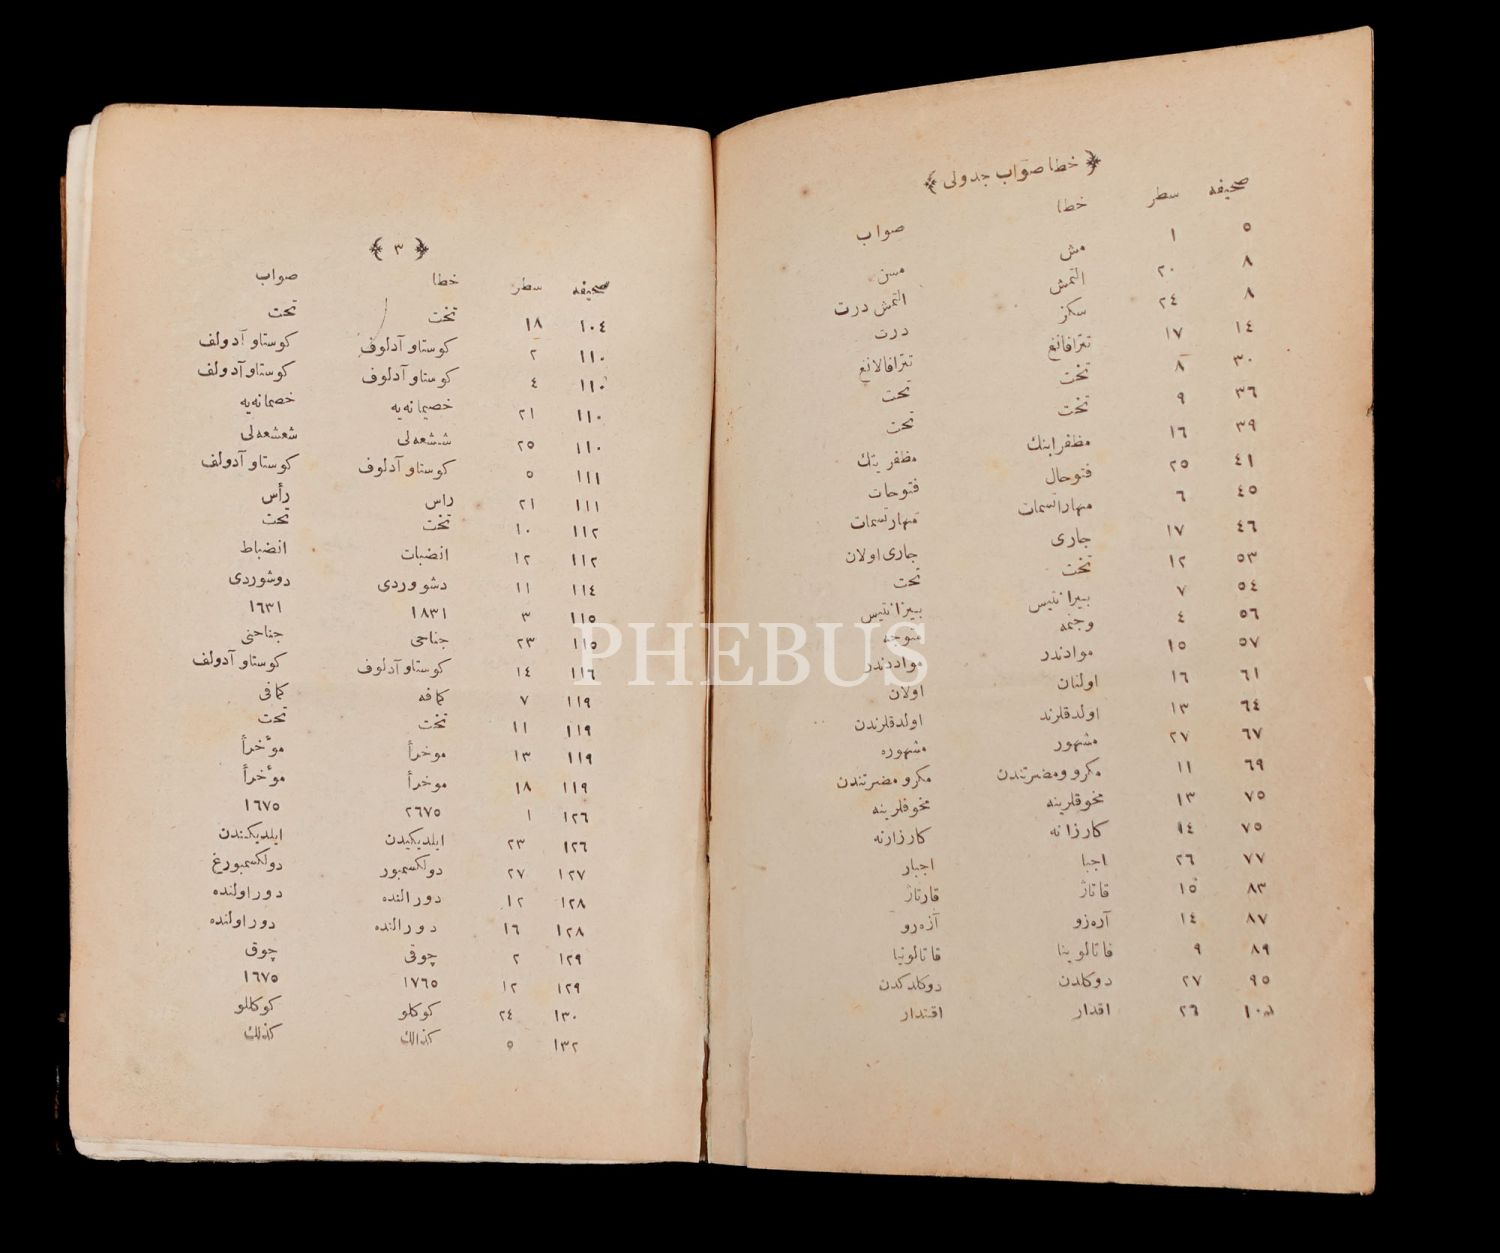 ﴿ خطا صواب جدولی ﴾
صحیفه سطر خطا صواب
٥ ١ مش مسن
٨ ٢٠ التمش التمش درت
٨ ٢٤ سكز درت
١٤ ١٧ تترافانغ تترافالانغ
٣٠ ٨ تخت تحت
٣٦ ٩ تخت تحت
٣٩ ١٦ مظفر ابنك مظفریتك
٤١ ٢٥ فتوحال فتوحات
٤٥ ٦ مهاراتسمات مهارتسمات
٤٦ ١٧ جاری جاری اولان
٥٣ ١٢ تخت تحت
٥٤ ٧ بیرانتیس بیزانتیس
٥٦ ٤ وجتمه متوجه
٥٧ ١٥ موادندر مواددندر
٦١ ١٦ اولنان اولان
٦٤ ١٣ اولدقلرند اولدقلرندن
٦٧ ٢٧ مشهور مشهوره
٦٩ ١١ مكرو ومضرتندن مكرو مضرتندن
٧٥ ١٣ مخوقلرینه مخوفلرینه
٧٥ ١٤ كارزانه كارزارنه
٧٧ ٢٦ اجبا اجبار
٨٣ ١٥ قاتاژ قارتاژ
٨٧ ١٤ آره‌زو آزه‌رو
٨٩ ٩ قاتالوینا قاتالونیا
٩٥ ٢٧ دوكلدن دوكلدكدن
١٠٠ ٢٦ اقدار اقتدار
﴿ ٣ ﴾
صحیفه سطر خطا صواب
١٠٤ ١٨ تخت تحت
١١٠ ٢ كوستاو آدلوف كوستاو آدولف
١١٠ ٤ كوستاو آدلوف كوستاو آدولف
١١٠ ٢١ خصیمانه‌یه خصمانه‌یه
١١٠ ٢٥ ششعه‌لی شعشعه‌لی
١١١ ٥ كوستاو آدلوف كوستاو آدولف
١١١ ٢١ راس رأس
١١٢ ١٠ تخت تحت
١١٢ ١٢ انضبات انضباط
١١٤ ١١ دشووردی دوشوردی
١١٥ ٣ ١٨٣١ ١٦٣١
١١٥ ٢٣ جناحی جناحنی
١١٦ ١٤ كوستاو آدلوف كوستاو آدولف
١١٩ ٧ كافه كافی
١١٩ ١١ تخت تحت
١١٩ ١٣ موخرأ مؤخرأ
١١٩ ١٨ موخرأ مؤخرأ
١٢٦ ١ ٢٦٧٥ ١٦٧٥
١٢٦ ٢٣ ایلدیكیدن ایلدیكندن
١٢٧ ٢٧ دولكسمبور دولكسمبورغ
١٢٨ ١٢ دورالنده دوراولنده
١٢٨ ١٦ دورالنده دوراولنده
١٢٩ ٢ چوقی چوق
١٢٩ ١٢ ١٧٦٥ ١٦٧٥
١٣٠ ٢٤ كوكلو كوكللو
١٣٢ ٥ كذالك كذلك
PHEBUS